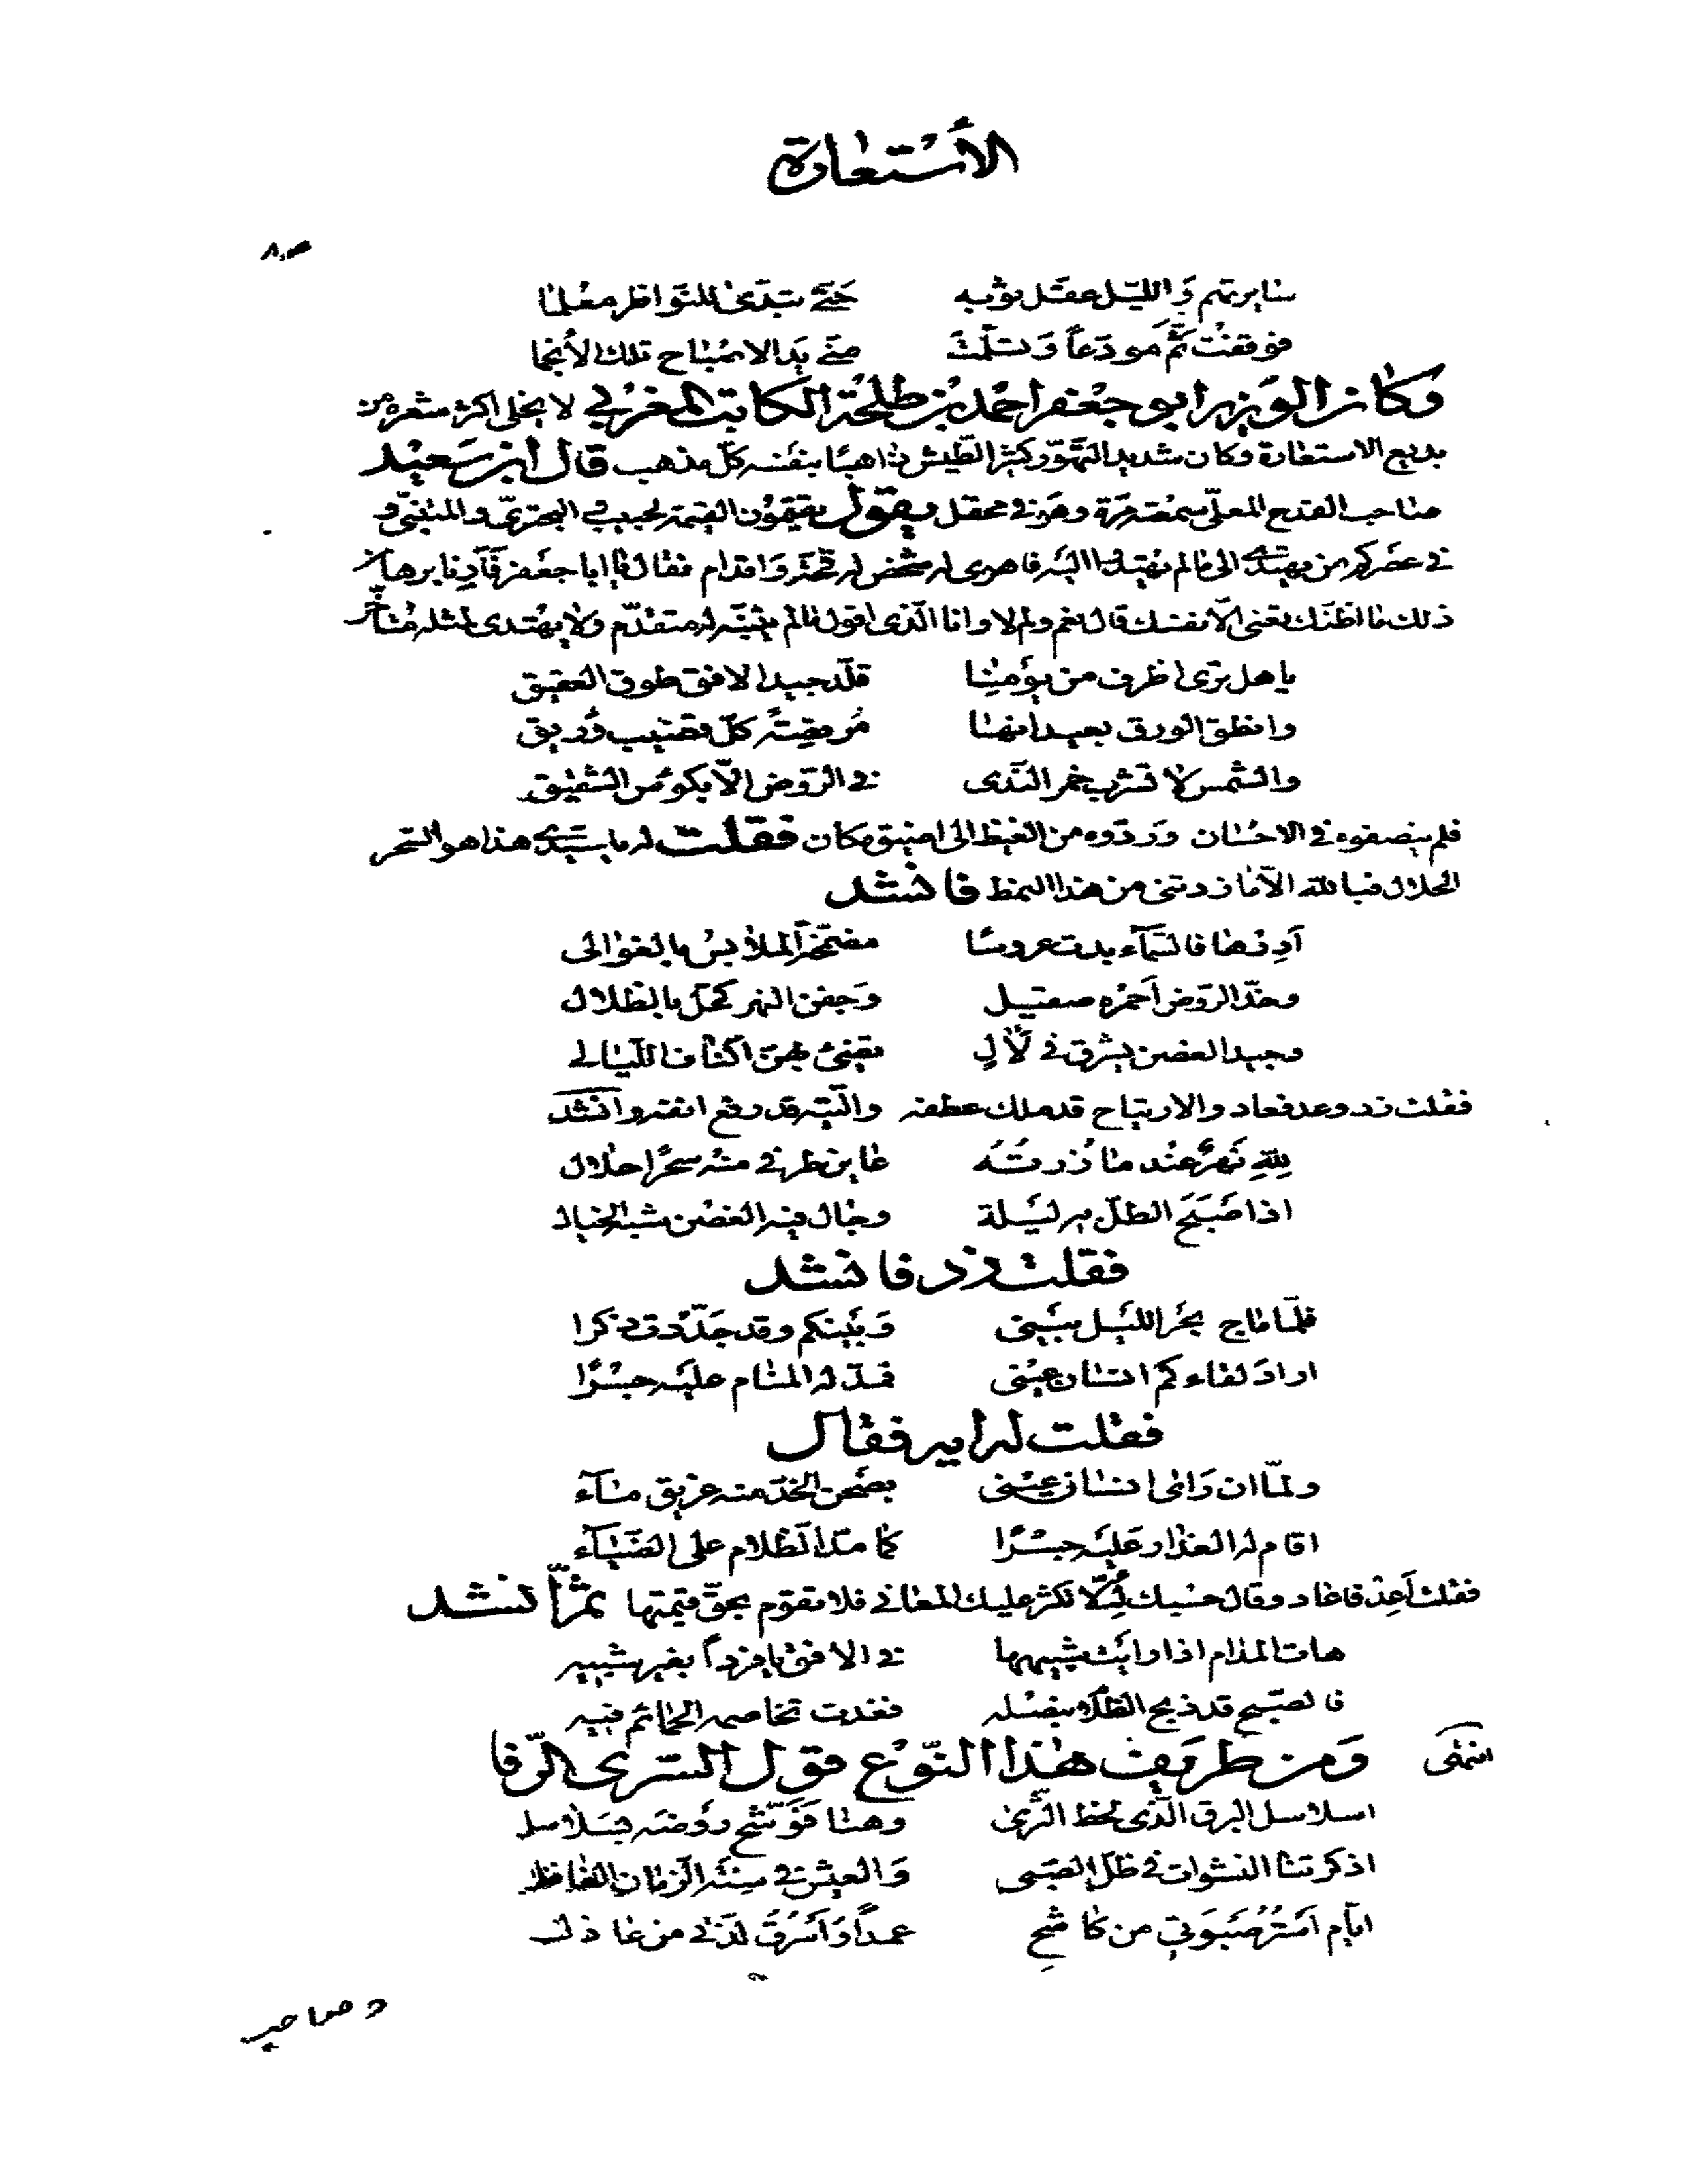 الأستعارة
ص ٨
سايرتهم وَالليل عقل ثوبه حَتّى تبدّى للنّواظر معلما
فوقفتُ ثَمَّ مودّعاً وَتسلّمت منّى يَد الاصْباح تلك الأنجما
وَكان الوَزير ابو جعْفر احْمد بن طلحْة الكاتب المغربي لا يخلى اكثر شعره من
بديع الاستعارة وكان شديد التهوّر كثير الطّيش ذاهبًا بنفسه كلّ مذهب قال ابن سَعيْد
صاحب القدح المعلّى سمعته مرّة وهَو فى محفل يقول تقيمون القيمة لحبيب والبحتريّ والمتنبّى و
فى عصركم من يهتدى الى ما لم يهتد اليْه فاهوى له شخص له قحة وَاقدام فقال يا ابا جعْفر فَأرنا برهان
ذلك ما اظنّك تعنى الّا نفسك قال نعم ولم لا وانا الّذى اقول ما لم يتنبّه له متقدّم وَلا يهْتدى لمثله مُتأخّر
يا هل ترى اظرف من يوْمنا قلّد جيد الافق طوق العقيق
وانطق الورق بعيدانها مُرقصةً كلّ قضيب وَريق
والشّمس لا تشرب خمر النّدى فى الرّوض الّا بكؤس الشّقيق
فلم ينصفوه فى الاحْسان وردّوه من الغيظ الى اضيق مكان فقلت له يا سيّدى هذا هو السّحر
الحلال فبالله الّا ما زدتنى من هذا النمط فانشد
أدِرْها فالسّمآء بدت عروسًا مضمّخة الملابس بالغوالى
وخدّ الرّوض أحمره صقيل وَجفن النهر كحّل بالظلال
وجيد الغصن يشرق فى لَآلٍ تضئ بهنّ اكناف الليالي
فقلت زد وعد فعاد والارتياح قد ملك عطفه والتّيه قد رفع انفه وانشد
لِلّهِ نَهرٌ عنْد ما زُرتُه عاين طرفى منْه سحرًا حلال
اذا صَبَحَ الطلّ به ليْلة وجال فيه الغصْن شبه الخيال
فقلت زد فانشد
فلمّا ماج بحْر الليْل بيْنى وَبيْنكم وقد جَدّدت ذكرا
اراد لقاءكم انسان عيْنى فمدّ له المنام عليْه جسْرًا
فقلت له ايه فقال
ولمّا ان رَاى انسان عيْنى بصَحْن الخدّ منه غريق مآء
اقام له العذار عَليْه جسْرًا كما مدّ الظلام على الضّيآء
فقلت أعِدْ فاعاد وقال حسْبك لِئلّا تكثر عليك المعانى فلا تقوم بحقّ قيمتها ثمّ أنشد
هات المدام اذا رايْت شبيهها فى الافق يا فرداً بغير شبيه
فالصّبح قد ذبح الظّلام بنصْله فغدت تخاصمه الحمائم فيه
انتهى وَمن ظريف هذا النّوْع قول السّرى الرّفا
اسلاسل البرق الّذى لحظ الثّرى وهنا فَوَشّح روْضه بسَلاسل
اذكرتنا النشوات فى ظلّ الصّبى وَالعيْش فى سِنَة الزّمان الغافل
ايّام اسْتُر صَبْوَتى من كاشحٍ عمداً وَأسْرق لذّتى من عاذل
وصاحب